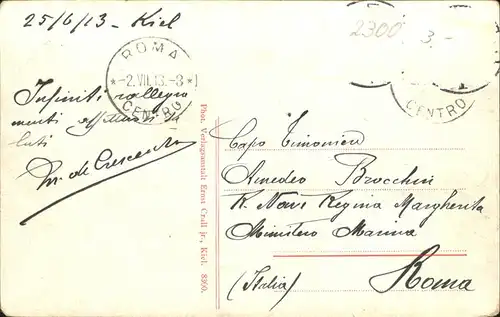 25/6/13 - Kiel
2300 3.-
ROMA
*-2.VII.13.-8*1
CENTRO
CENTRO
Infiniti rallegra
menti affettuosi sa
luti
M. de Crescenzo
Phot. Verlagsanstalt Ernst Crull jr., Kiel. 8360.
Capo Timoniere
Amedeo Brocchini
R. Nave Regina Margherita
Ministero Marina
Roma
(Italia)